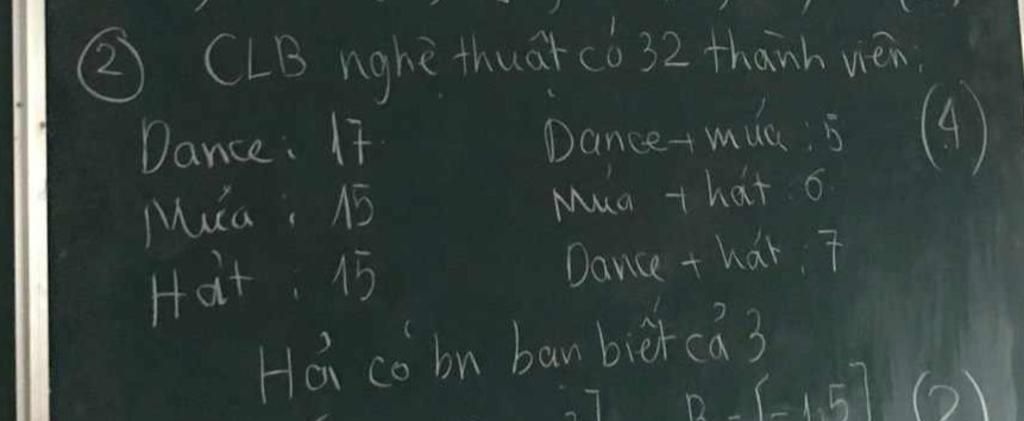 ② CLB nghệ thuật có 32 thành viên:
Dance: 17 Dance + múa: 5 (4)
Múa: 15 Múa + hát: 6
Hát: 15 Dance + hát: 7
Hỏi có bn bạn biết cả 3
B = [-1,5] (2)